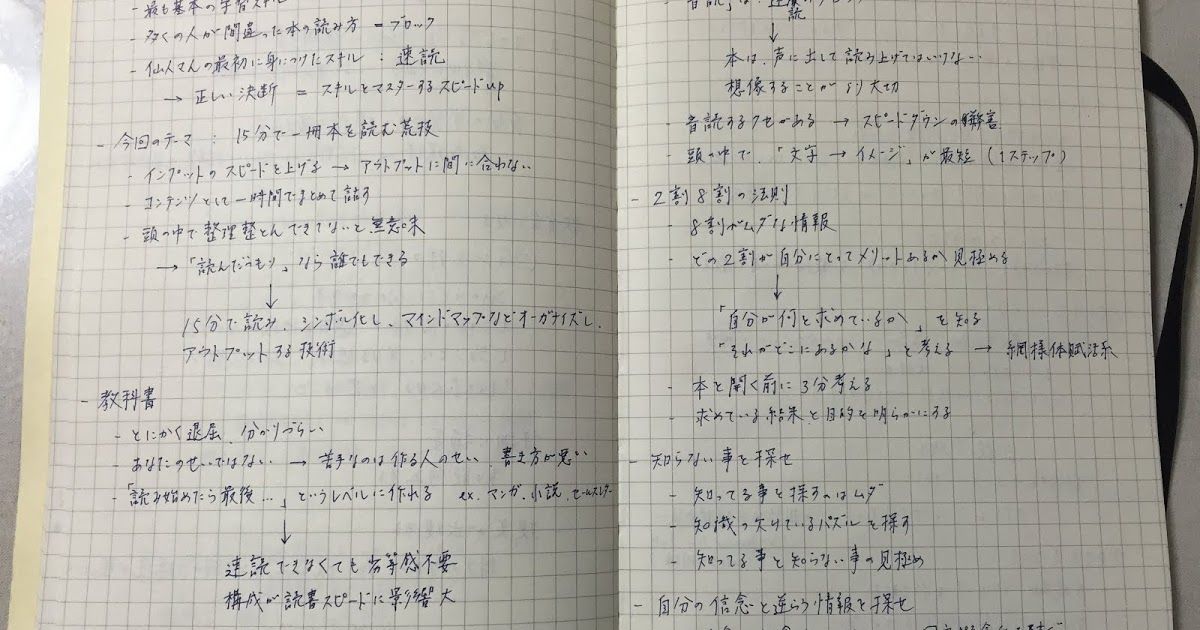 - 最も基本の学習スキル
- 多くの人が間違った本の読み方 = ブロック
- 仙人さんの最初に身につけたスキル : 速読
→ 正しい決断 = スキルをマスターするスピードup
- 今回のテーマ : 15分で一冊本を読む荒技
- インプットのスピードを上げる → アウトプットに間に合わない
- コンテンツとして一時間でまとめて話す
- 頭の中で整理整とんできてないと無意味
→ 「読んだつもり」なら誰でもできる
↓
15分で読み、シンボル化し、マインドマップなどオーガナイズし、
アウトプットする技術
- 教科書
- とにかく退屈、分かりづらい
- あなたのせいではない → 苦手なのは作る人のせい、書き方が悪い
- 「読み始めたら最後…」というレベルに作れる ex. マンガ、小説、セールスレター
↓
速読できなくても劣等感不要
構成が読書スピードに影響大
読
↓
本は、声に出して読み上げてはいけない…
想像することがより大切
- 音読するクセがある → スピードダウンの弊害
- 頭の中で、「文字 → イメージ」が最短 (1ステップ)
- 2割8割の法則
- 8割がムダな情報
- どの2割が自分にとってメリットあるか見極める
↓
「自分が何を求めているか」を知る
「それがどこにあるかな」と考える → 網様体賦活系
- 本を開く前に3分考える
- 求めている結果と目的を明らかにする
- 知らない事を探せ
- 知ってる事を探すのはムダ
- 知識の欠けているパズルを探す
- 知ってる事と知らない事の見極め
- 自分の信念と逆らう情報を探せ